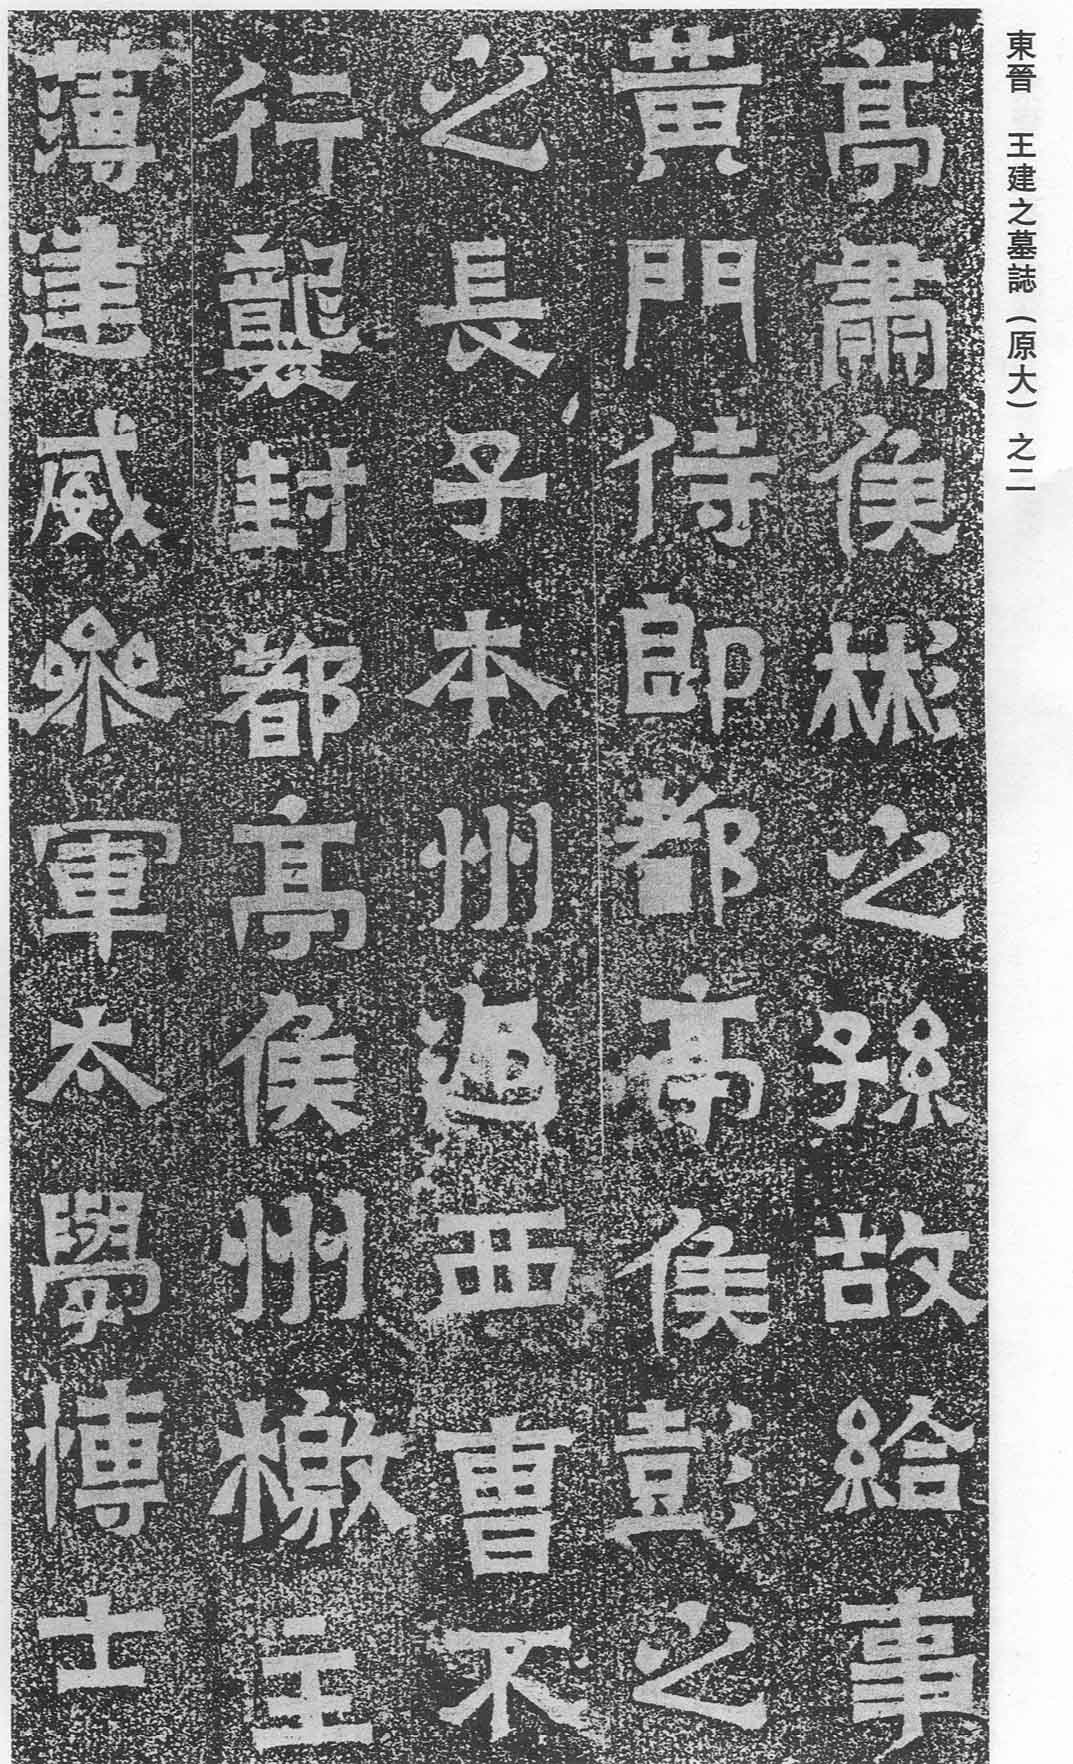 東晉 王建之墓誌(原大) 之二
亭肅侯彬之孫故給事
黃門侍郎都亭侯彭之
之長子本州迎西曹不
行襲封都亭侯州檄主
薄建威參軍太學博士